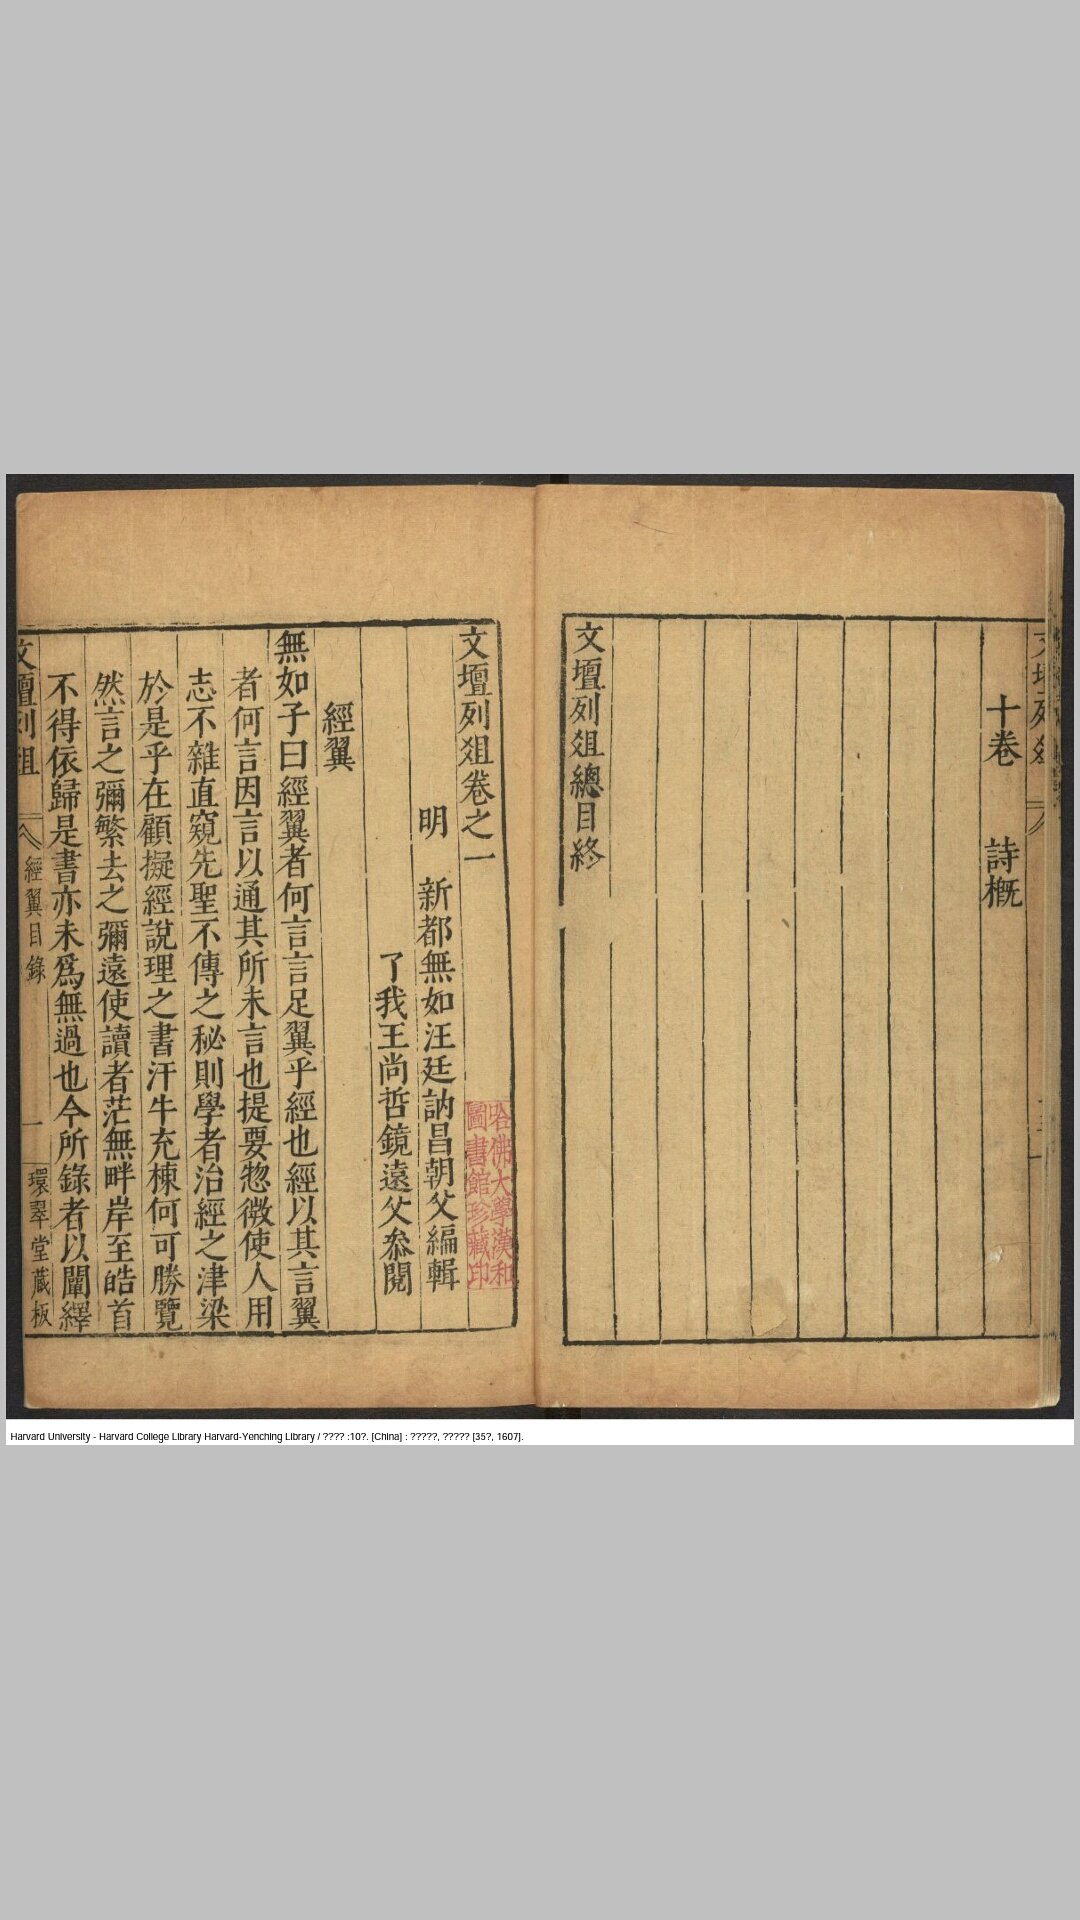 十卷　詩概
文壇列爼總目終
文壇列爼卷之一
明　新都無如汪廷訥昌朝父編輯
了我王尚哲鏡遠父叅閱
經翼
無如子曰經翼者何言言足翼乎經也經以其言翼
者何言因言以通其所未言也提要惣微使人用
志不雜直窺先聖不傳之秘則學者治經之津梁
於是乎在顧擬經說理之書汗牛充棟何可勝覽
然言之彌繁去之彌遠使讀者茫無畔岸至皓首
不得依歸是書亦未爲無過也今所錄者以闡繹
文壇列爼
經翼目錄
一
環翠堂蔵板
哈佛大學漢和
圖書館珍藏印
Harvard University - Harvard College Library Harvard-Yenching Library / ???? :10?. [China] : ?????, ????? [35?, 1607].